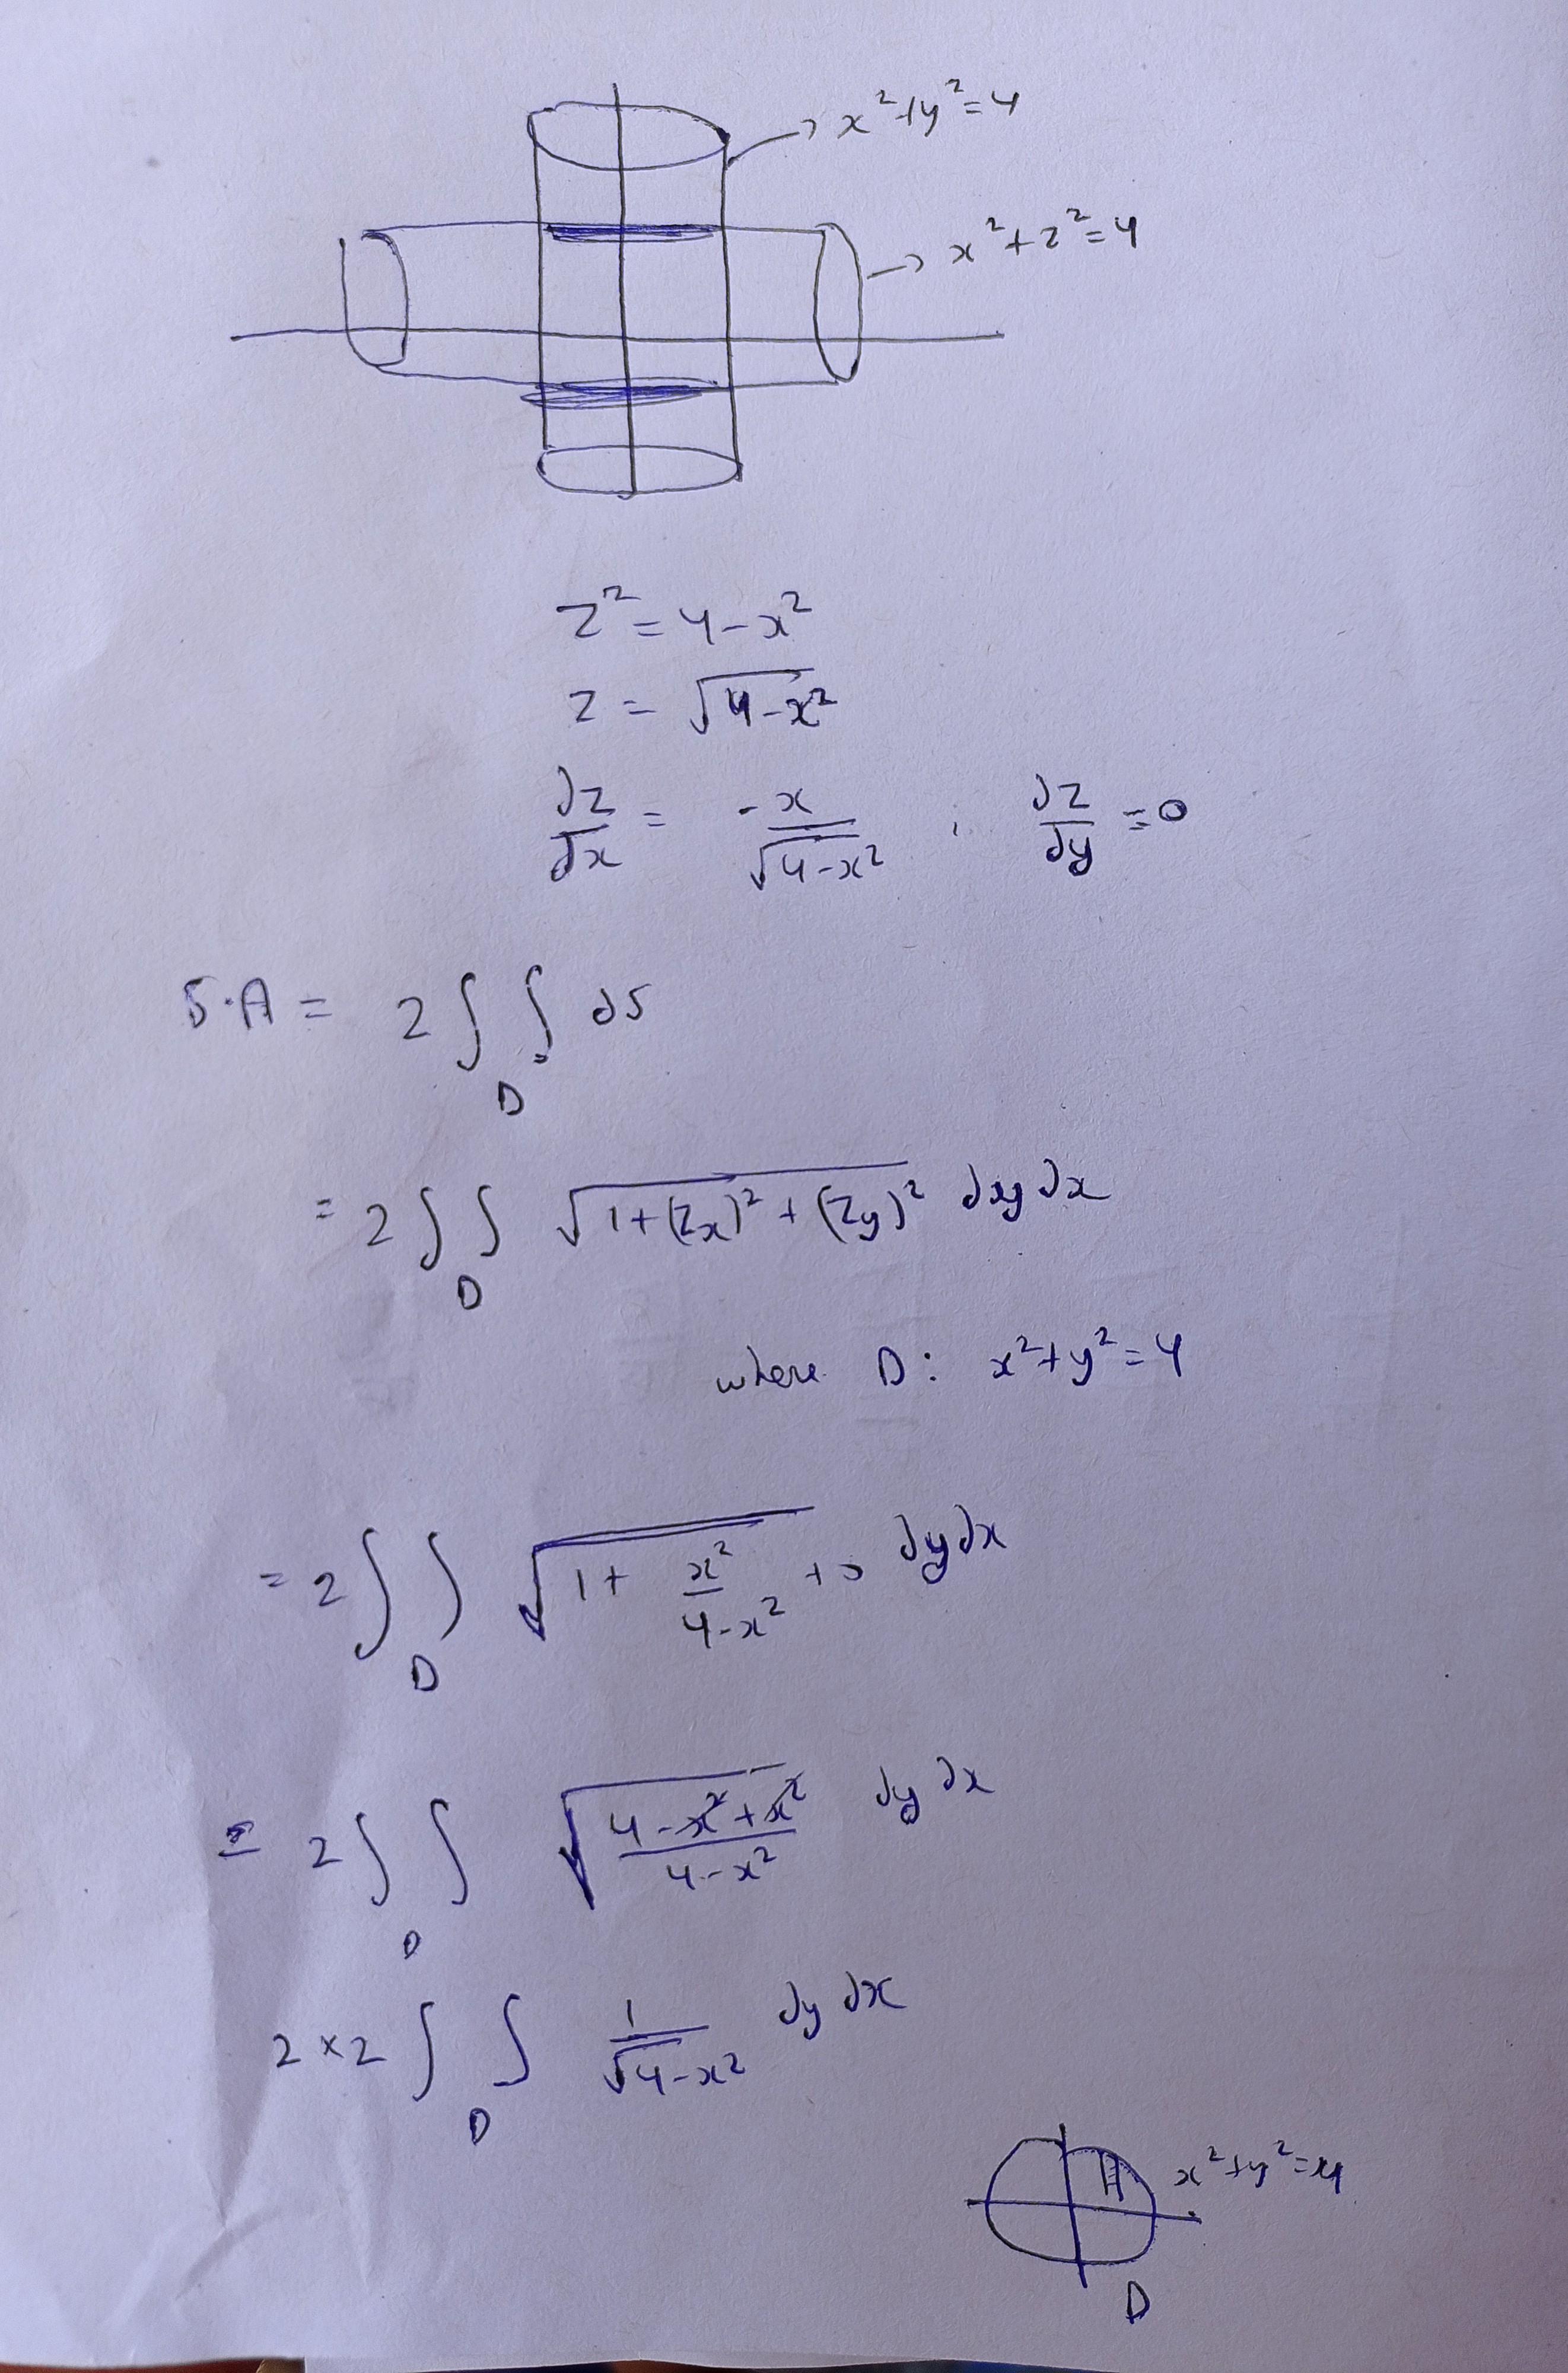 → x²+y²=4
→ x²+z²=4
z²=4-x²
z = √(4-x²)
∂z/∂x = -x/√(4-x²) ; ∂z/∂y =0
S.A = 2 ∫∫_D ds
= 2 ∫∫_D √(1+(Zx)²+(Zy)²) dy dx
where D: x²+y²=4
= 2 ∫∫_D √(1+ x²/(4-x²) +0) dy dx
= 2 ∫∫_D √((4-x²+x²)/(4-x²)) dy dx
2×2 ∫∫_D 1/√(4-x²) dy dx
x²+y²=4
D